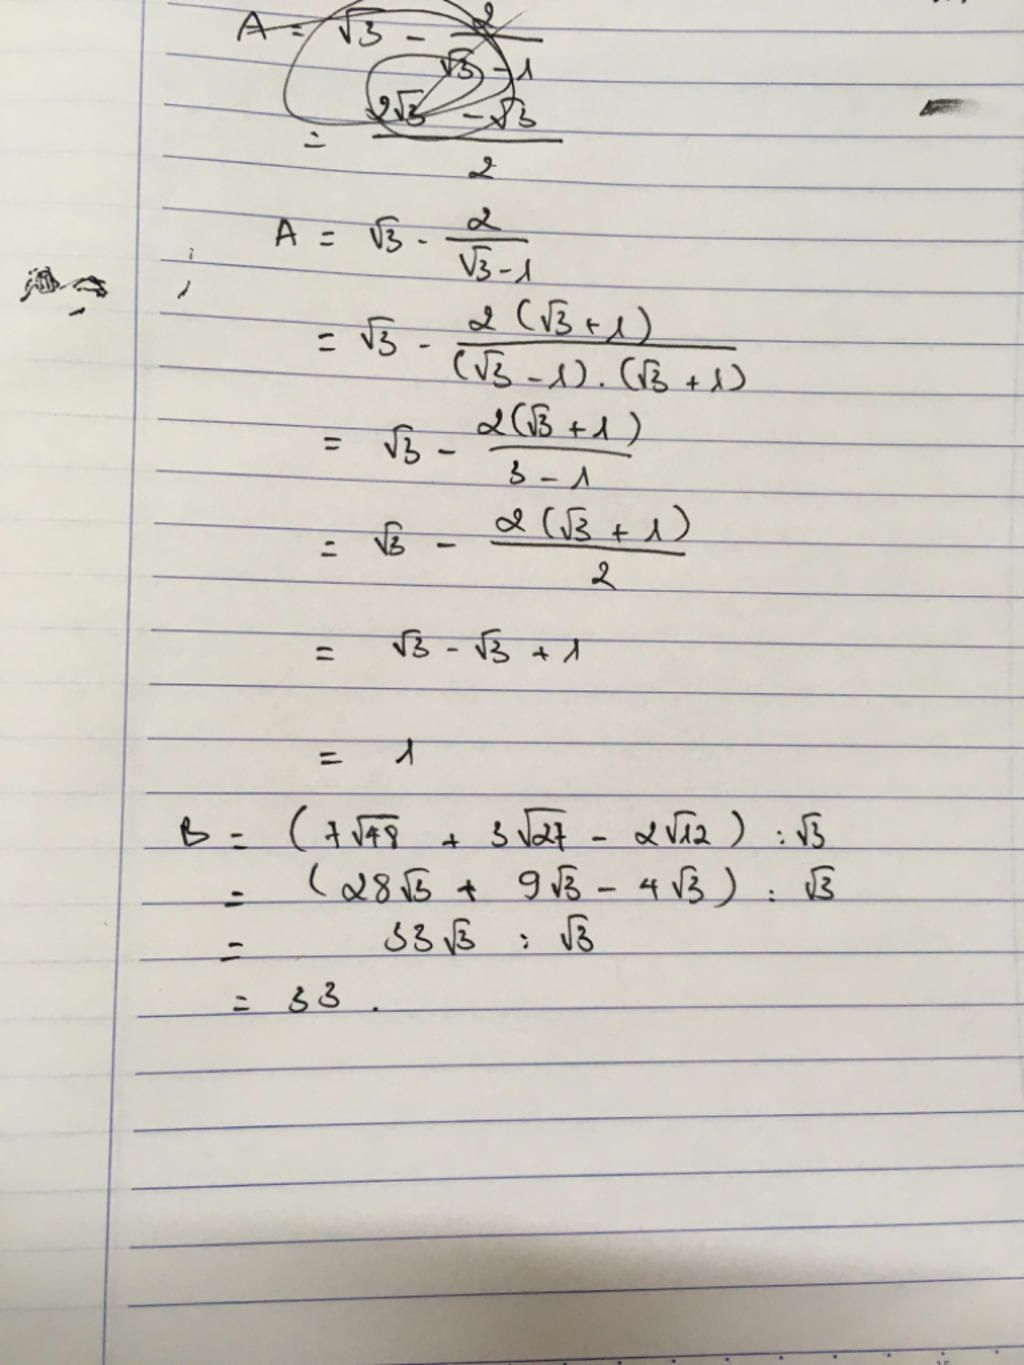 A = √3 - 2/(√3 - 1)
= (2√3 - √3)/2
A = √3 - 2/(√3 - 1)
= √3 - 2(√3 + 1)/((√3 - 1).(√3 + 1))
= √3 - 2(√3 + 1)/(3 - 1)
= √3 - 2(√3 + 1)/2
= √3 - √3 + 1
= 1
B = (7√48 + 3√27 - 2√12) : √3
= (28√3 + 9√3 - 4√3) : √3
= 33√3 : √3
= 33.